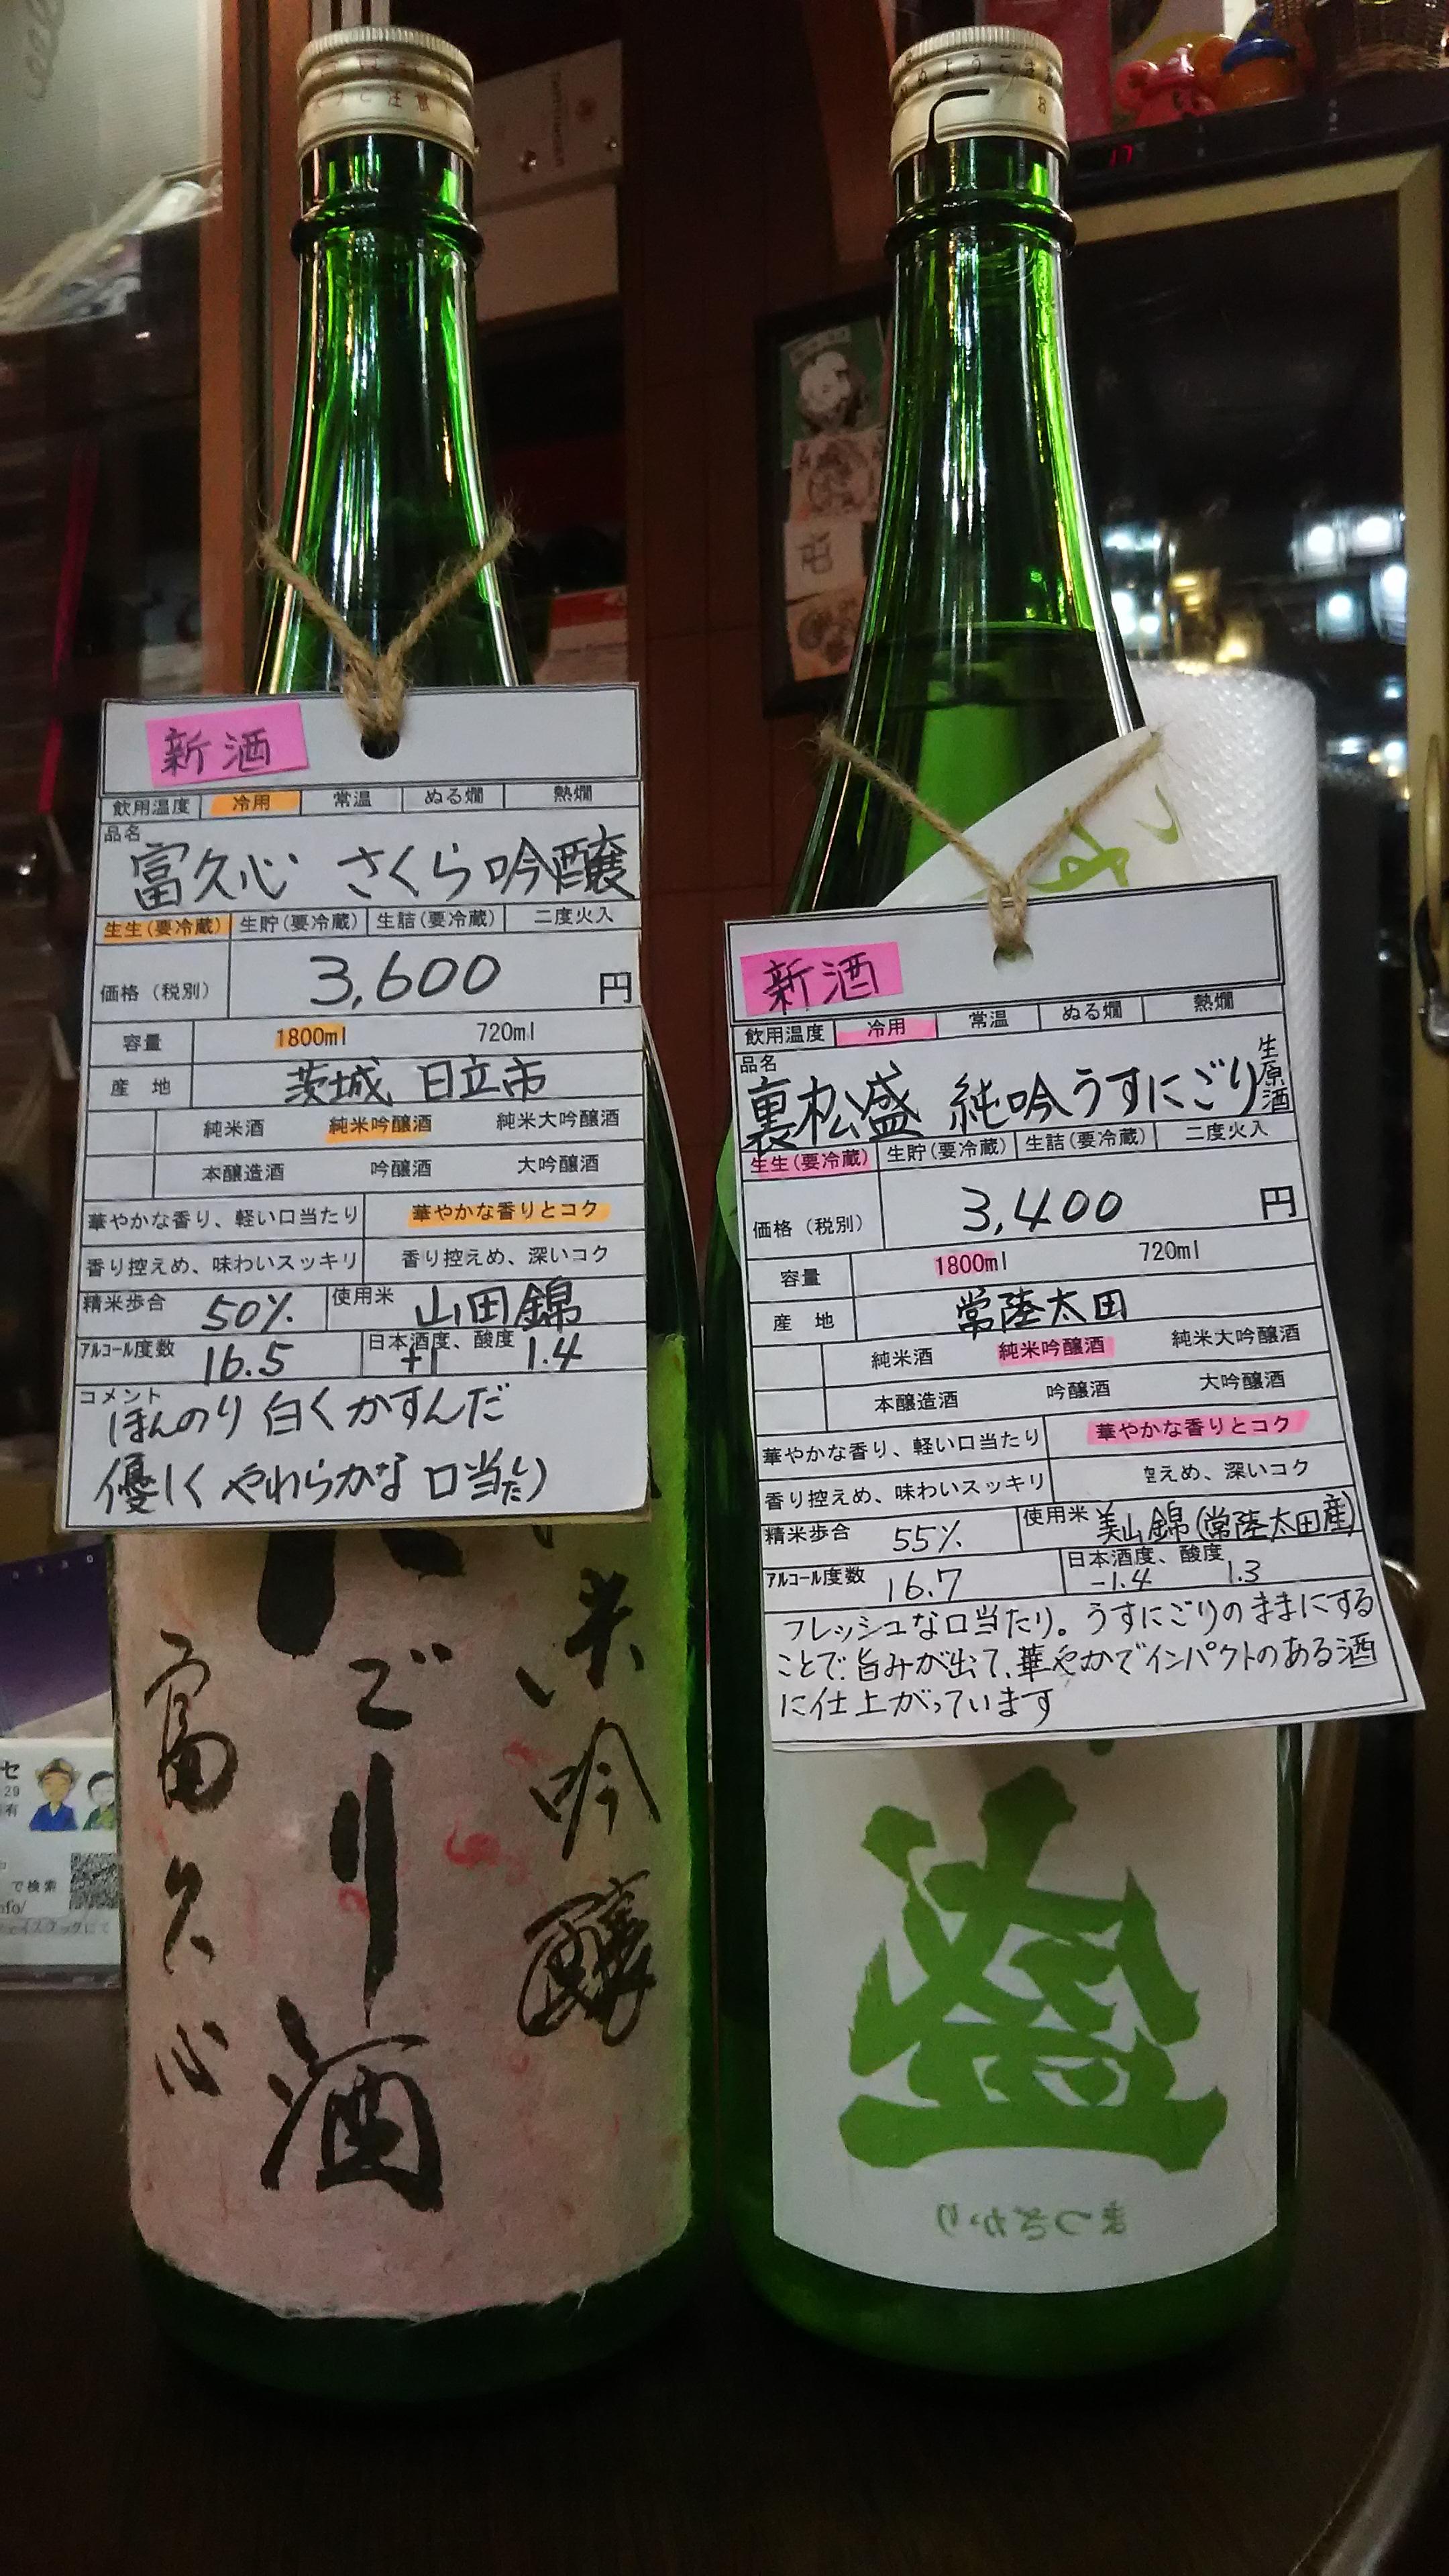 新酒
飲用温度 冷用 常温 ぬる燗 熱燗
品名
富久心 さくら吟醸
生生(要冷蔵) 生貯(要冷蔵) 生詰(要冷蔵) 二度火入
価格(税別) 3,600 円
容量 1800ml 720ml
産地 茨城 日立市
純米酒 純米吟醸酒 純米大吟醸酒
本醸造酒 吟醸酒 大吟醸酒
華やかな香り、軽い口当たり 華やかな香りとコク
香り控えめ、味わいスッキリ 香り控えめ、深いコク
精米歩合 50% 使用米 山田錦
アルコール度数 16.5 日本酒度、酸度 +1 1.4
コメント
ほんのり白くかすんだ
優しくやわらかな口当たり
米吟醸
ごり酒
富久心
新酒
飲用温度 冷用 常温 ぬる燗 熱燗
品名
裏松盛 純吟うすにごり生原酒
生生(要冷蔵) 生貯(要冷蔵) 生詰(要冷蔵) 二度火入
価格(税別) 3,400 円
容量 1800ml 720ml
産地 常陸太田
純米酒 純米吟醸酒 純米大吟醸酒
本醸造酒 吟醸酒 大吟醸酒
華やかな香り、軽い口当たり 華やかな香りとコク
香り控えめ、味わいスッキリ 控えめ、深いコク
精米歩合 55% 使用米 美山錦(常陸太田産)
アルコール度数 16.7 日本酒度、酸度 -1.4 1.3
フレッシュな口当たり。うすにごりのままにする
ことで旨みが出て、華やかでインパクトのある酒
に仕上がっています
盛
まつざかり
17
で検索